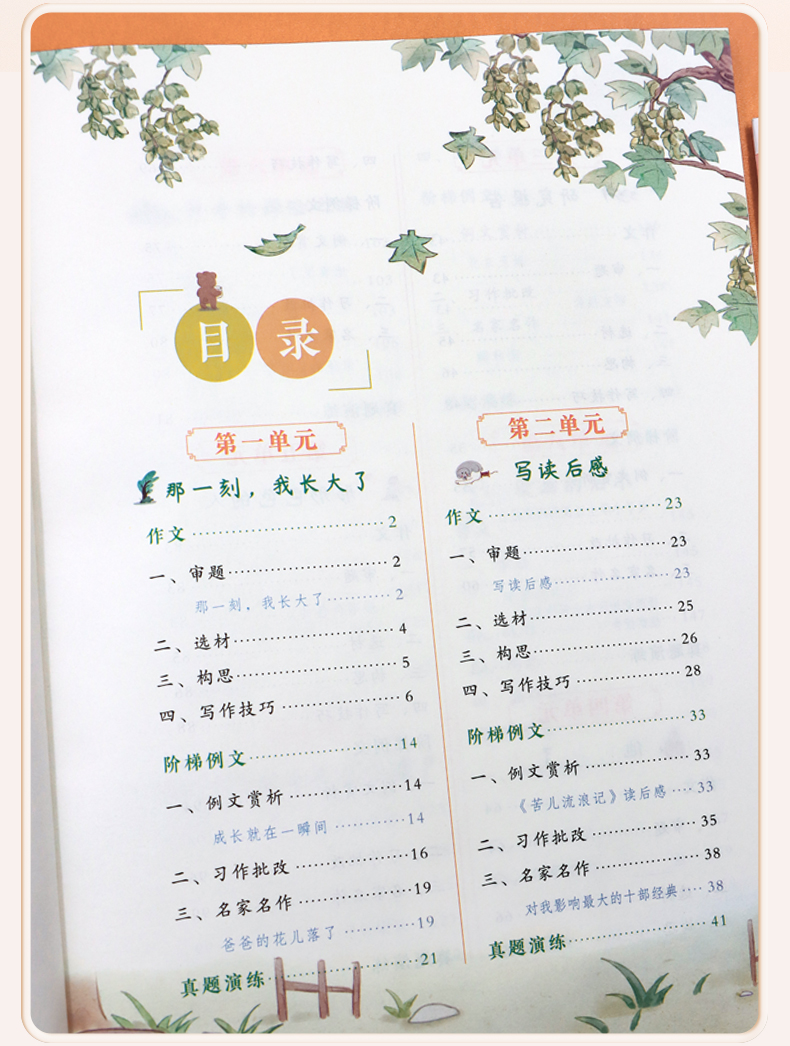 目录
第一单元
那一刻，我长大了
作文 2
一、审题 2
那一刻，我长大了 2
二、选材 4
三、构思 5
四、写作技巧 6
阶梯例文 14
一、例文赏析 14
成长就在一瞬间 14
二、习作批改 16
三、名家名作 19
爸爸的花儿落了 19
真题演练 21
第二单元
写读后感
作文 23
一、审题 23
写读后感 23
二、选材 25
三、构思 26
四、写作技巧 28
阶梯例文 33
一、例文赏析 33
《苦儿流浪记》读后感 33
二、习作批改 35
三、名家名作 38
对我影响最大的十部经典 38
真题演练 41